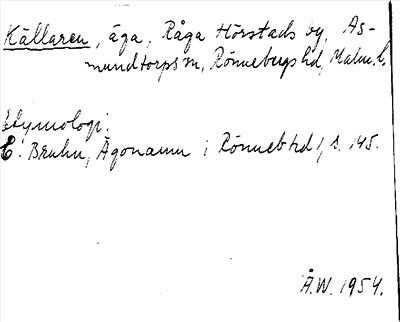 Källaren, äga, Råga Hörstads by, As-
mundtorps sn, Rönnebergs hd, Malm. l.
Etymologi:
E. Bruhn, Ägonamn i Rönneb hd 1, s. 145.
Å.W. 1954.